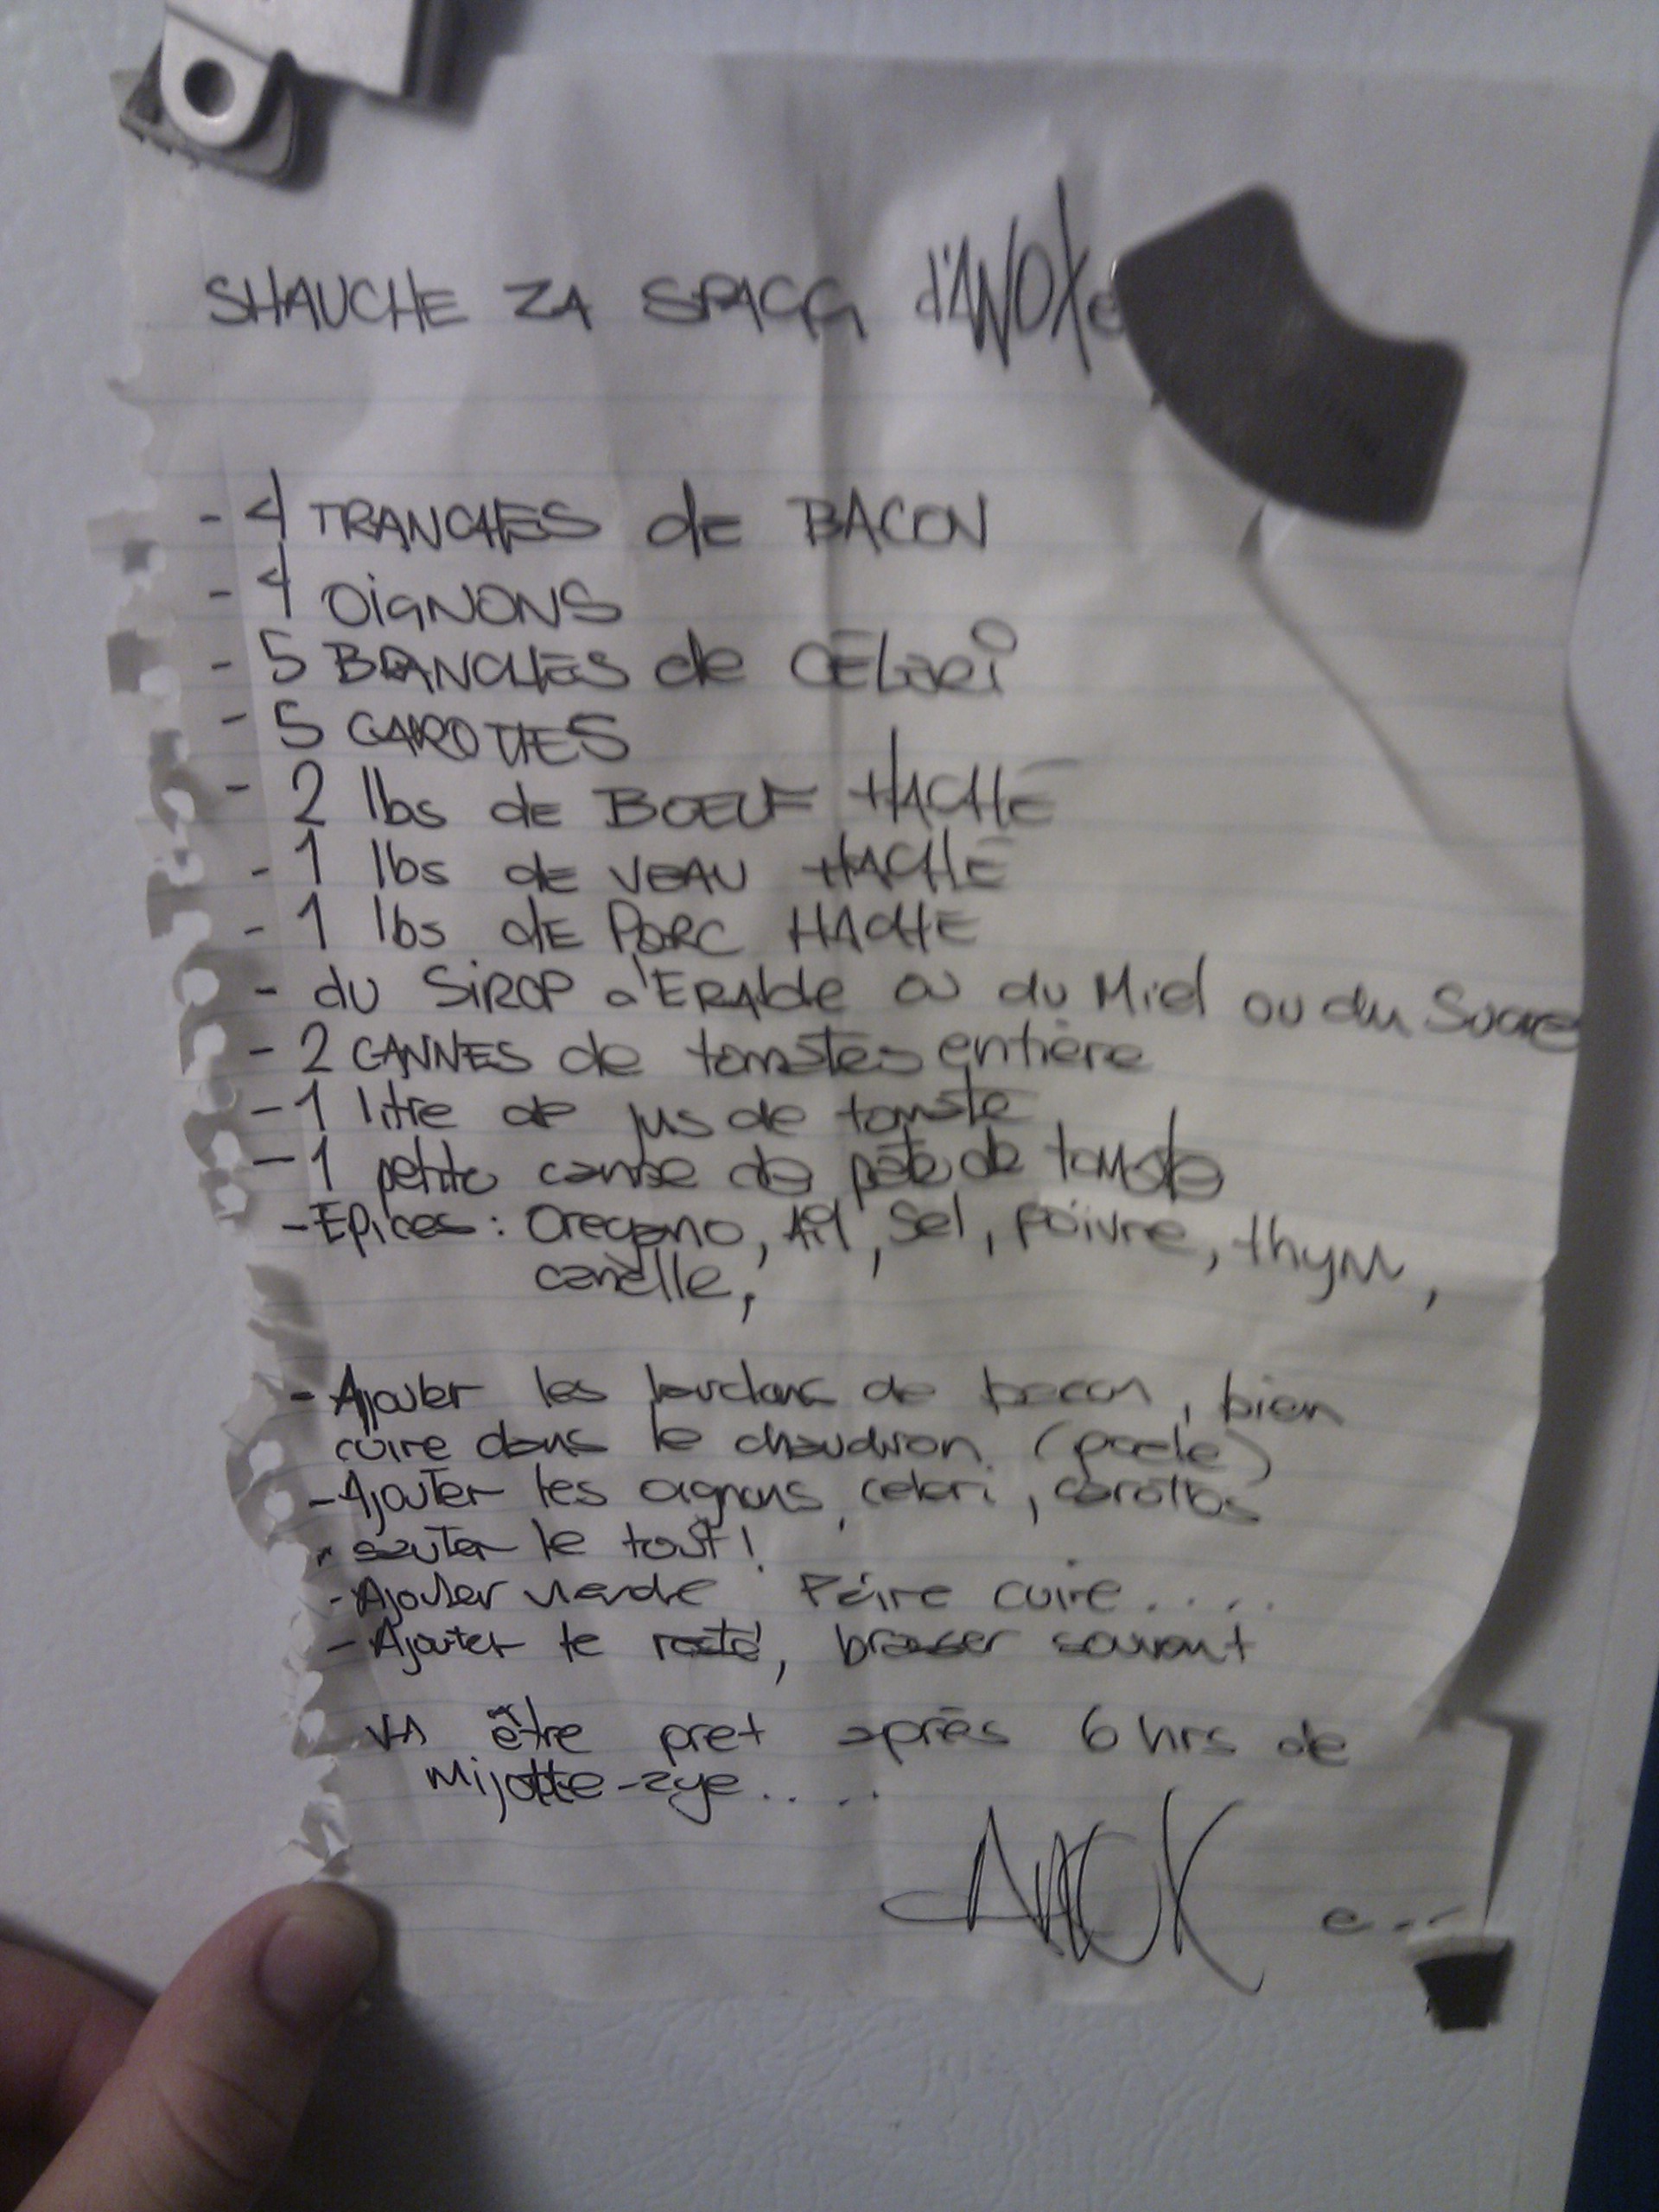 SHAUCHE ZA SPAGG d'ANOXe
- 4 TRANCHES de BACON
- 4 OiGNONS
- 5 BRANCHES de CÉLeRi
- 5 CAROTTES
- 2 lbs de BOEUF HACHÉ
- 1 lbs de VEAU HACHÉ
- 1 lbs de PORC HACHÉ
- du SiROP d'ERAble ou du Miel ou du Sucre
- 2 CANNES de tomates entière
- 1 litre de jus de tomate
- 1 petite canne de pâte de tomate
- Epices : Oregano, Ail, Sel, poivre, thym,
canelle,
- Ajouter les lardons de bacon, bien
cuire dans le chaudron (poele)
- Ajouter les oignons, celeri, carottes
sauter le tout!
- Ajouter viande Faire cuire....
- Ajouter le reste, brasser souvent
VA être pret après 6 hrs de
Mijotte-aye.....